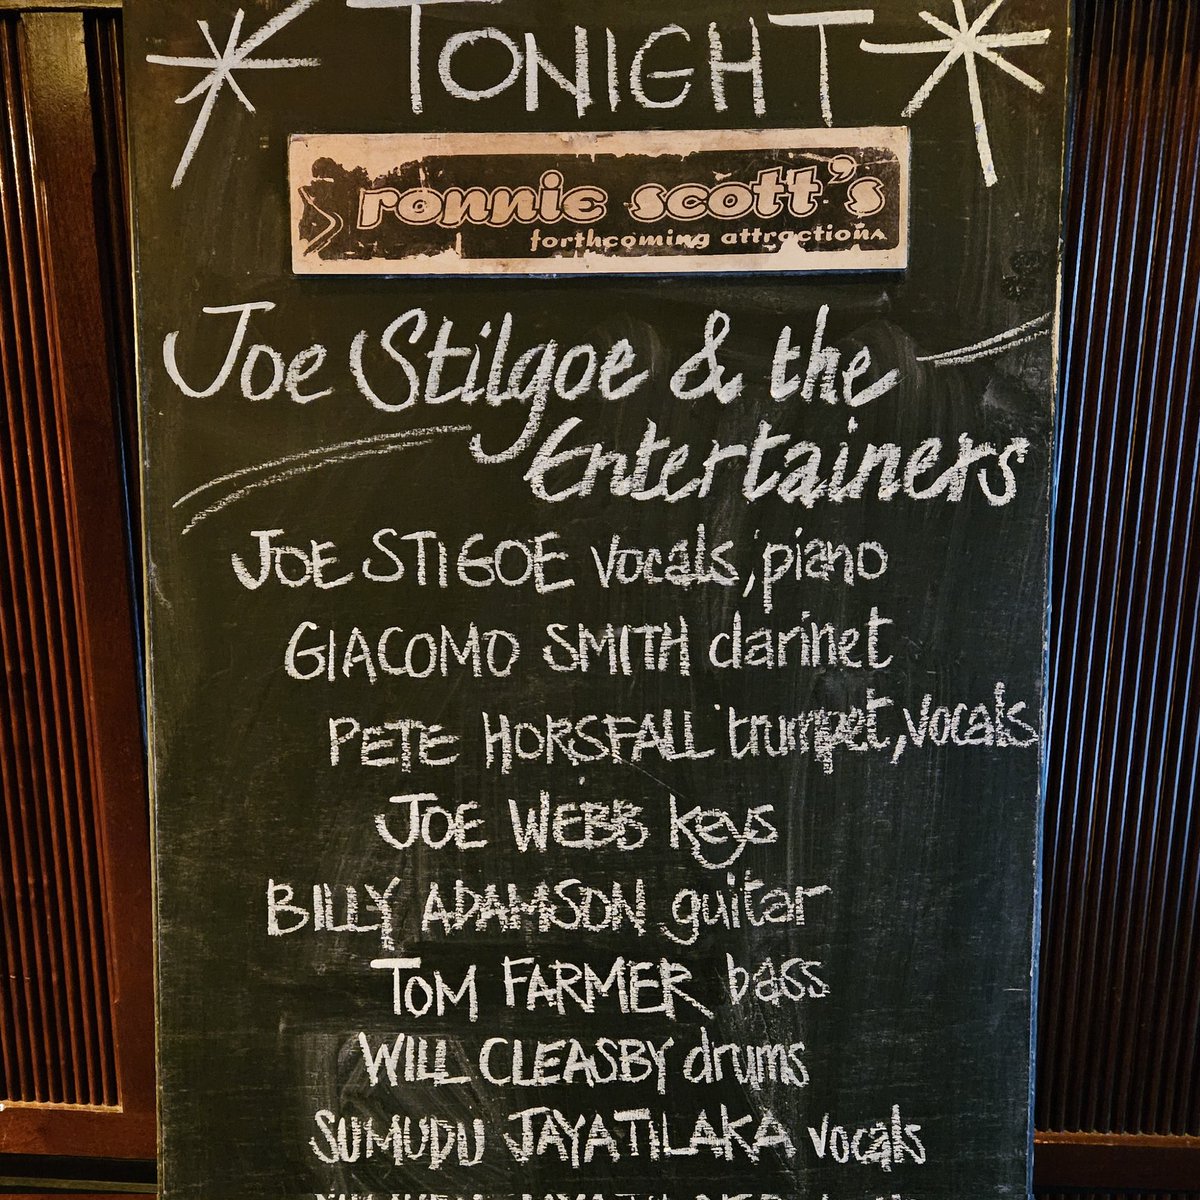 TONIGHT
ronnie scott's
forthcoming attractions
Joe Stilgoe & the
Entertainers
JOE STIGOE vocals, piano
GIACOMO SMITH clarinet
PETE HORSFALL trumpet, vocals
JOE WEBB keys
BILLY ADAMSON guitar
TOM FARMER bass
WILL CLEASBY drums
SUMUDU JAYATILAKA vocals